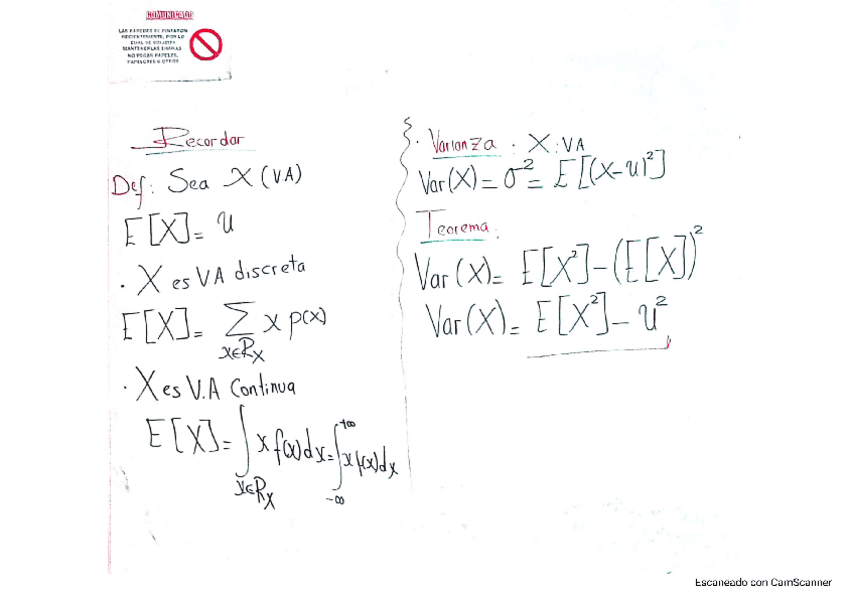 COMUNICADO
LAS PAREDES SE PINTARON
RECIENTEMENTE, POR LO
CUAL SE SOLICITA
MANTENERLAS LIMPIAS
NO PEGAR PAPELES,
Recordar
Def: Sea X (V.A)
E[X] = u
· X es VA discreta
E[X] = ∑ x p(x)
x∈Rx
· X es V.A Continua
E[X] = ∫ x f(x) dx = ∫ x f(x) dx
+∞
x∈Rx
-∞
· Varianza · X : VA
Var(X) = σ² = E[(X-u)²]
Teorema.
Var(X) = E[X²] - (E[X])²
Var(X) = E[X²] - u²
Escaneado con CamScanner